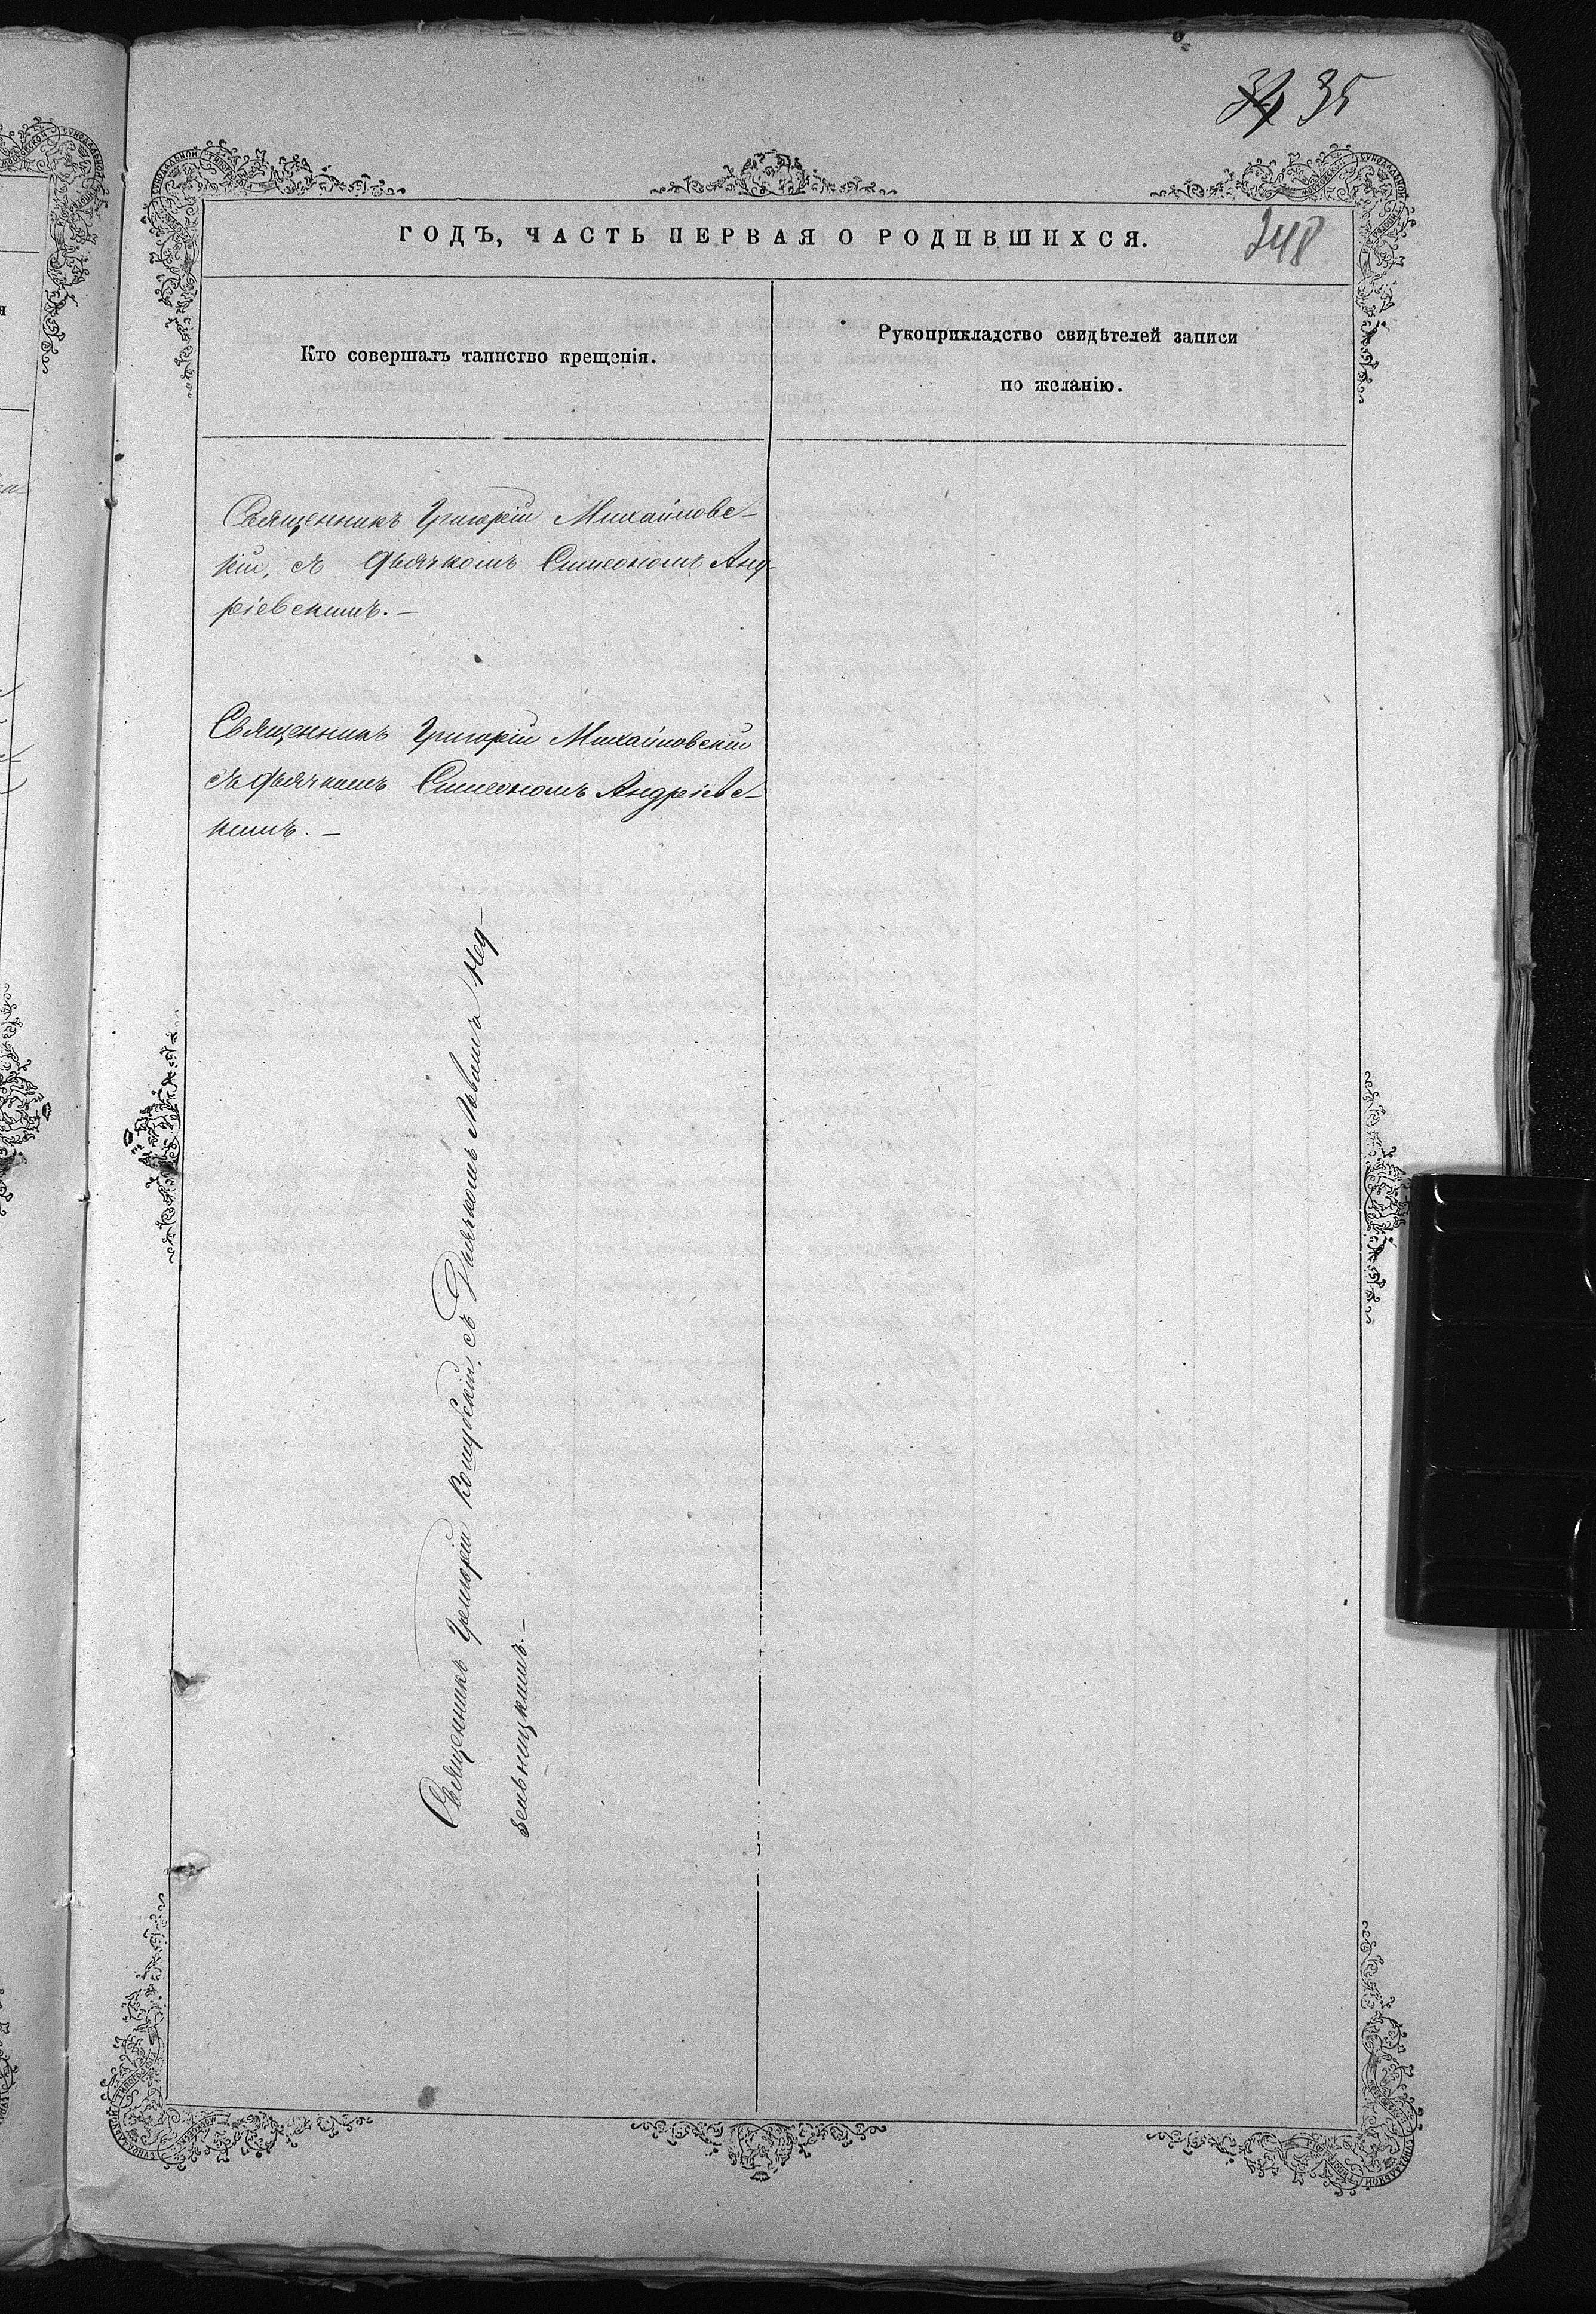 34 35
ГОДЪ, ЧАСТЬ ПЕРВАЯ О РОДИВШИХСЯ.
248
Кто совершалъ таинство крещенія.
Рукоприкладство свидѣтелей записи
по желанію.
Священникъ Григорій Михайловс-
кій, съ дьячкомъ Симеономъ Анд-
ріевскимъ. —
Священникъ Григорій Михайловскій
съ дьячкомъ Симеономъ Андріевс-
кимъ. —
Священникъ Григорій съ Дьячкомъ Львомъ Нед-
зельницкимъ. —